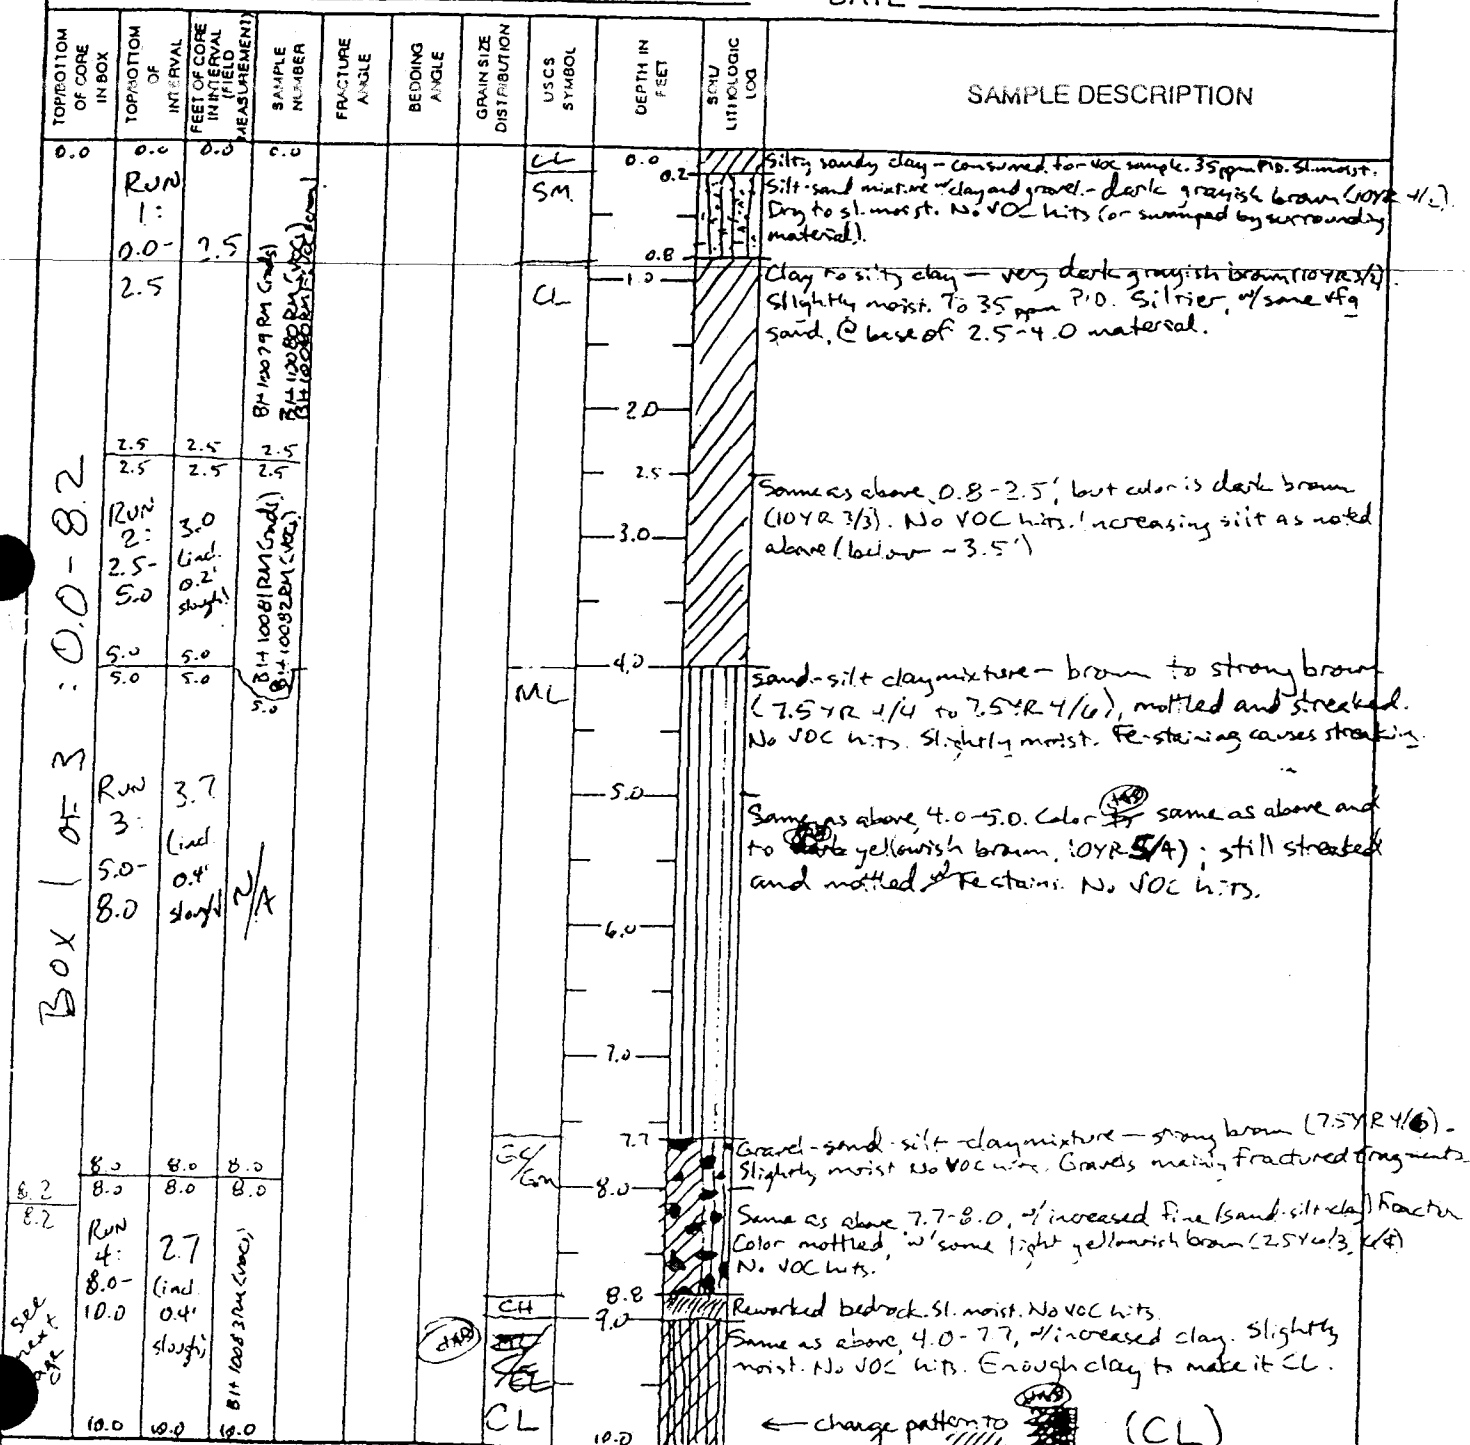 DATE
TOP/BOTTOM OF CORE IN BOX
TOP/BOTTOM OF INTERVAL
FEET OF CORE IN INTERVAL (FIELD MEASUREMENT)
SAMPLE NUMBER
FRACTURE ANGLE
BEDDING ANGLE
GRAIN SIZE DISTRIBUTION
USCS SYMBOL
DEPTH IN FEET
SOIL/ LITHOLOGIC LOG
SAMPLE DESCRIPTION
0.0 0.0 0.0 0.0
Box 1 of 3 : 0.0-8.2
RUN
1:
0.0-
2.5
2.5
2.5 2.5 2.5
2.5 2.5 2.5
RUN
2:
2.5-
5.0
3.0
(incl.
0.2'
slough)
5.0 5.0 5.0
5.0 5.0
RUN
3:
5.0-
8.0
3.7
(incl.
0.4'
slough)
N/A
8.0 8.0 8.0
8.0 8.0 8.0
8.2
8.2
RUN
4:
8.0-
10.0
2.7
(incl.
0.4'
slough)
see
next
page
10.0 10.0 10.0
BH10079RM (rads)
BH10080RM (VOCs)
BH10081RM (rads)
BH10082RM (VOCs)
BH10083RM (VOCs)
CL
SM
CL
ML
GC/
GM
CH
CL
0.0
0.2
0.8
1.0
2.0
2.5
3.0
4.0
5.0
6.0
7.0
7.7
8.0
8.8
9.0
10.0
Silty sandy clay - consumed for VOC sample. 35ppm PID. Sl. moist.
Silt-sand mixture w/clay and gravel - dark grayish brown (10YR 4/2).
Dry to sl. moist. No VOC hits (or swamped by surrounding
material).
Clay to silty clay - very dark grayish brown (10YR 3/2)
Slightly moist. To 35 ppm PID. Siltier, w/some vfg
sand, @ base of 2.5-4.0 material.
Same as above, 0.8-2.5', but color is dark brown
(10YR 3/3). No VOC hits. Increasing silt as noted
above (below ~3.5')
sand-silt clay mixture - brown to strong brown
(7.5YR 4/4 to 7.5YR 4/6), mottled and streaked.
No VOC hits. Slightly moist. Fe-staining causes streaking.
Same as above, 4.0-5.0. Color same as above and
to yellowish brown, 10YR 5/4); still streaked
and mottled w/ Fe stains. No VOC hits.
Gravel-sand-silt-clay mixture - strong brown (7.5YR 4/6).
Slightly moist No VOC hits. Gravels mainly fractured fragments
Same as above 7.7-8.0, w/increased fine (sand-silt-clay) fraction
Color mottled, w/ some light yellowish brown (2.5Y 6/3, 6/4)
No VOC hits.
Reworked bedrock. Sl. moist. No VOC hits.
Same as above, 4.0-7.7, w/increased clay. Slightly
moist. No VOC hits. Enough clay to make it CL.
← change pattern to (CL)